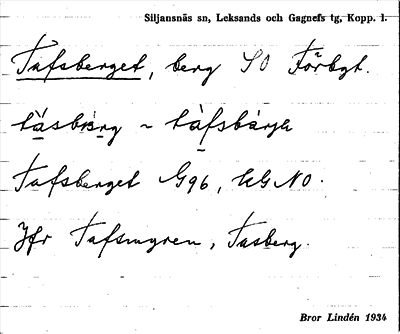 Siljansnäs sn, Leksands och Gagnefs tg, Kopp. l.
Tafsberget, berg SO Förbgt.
~
Tafsberget G96, KG NO.
Jfr Tafsmyren, Tasberg.
Bror Lindén 1934